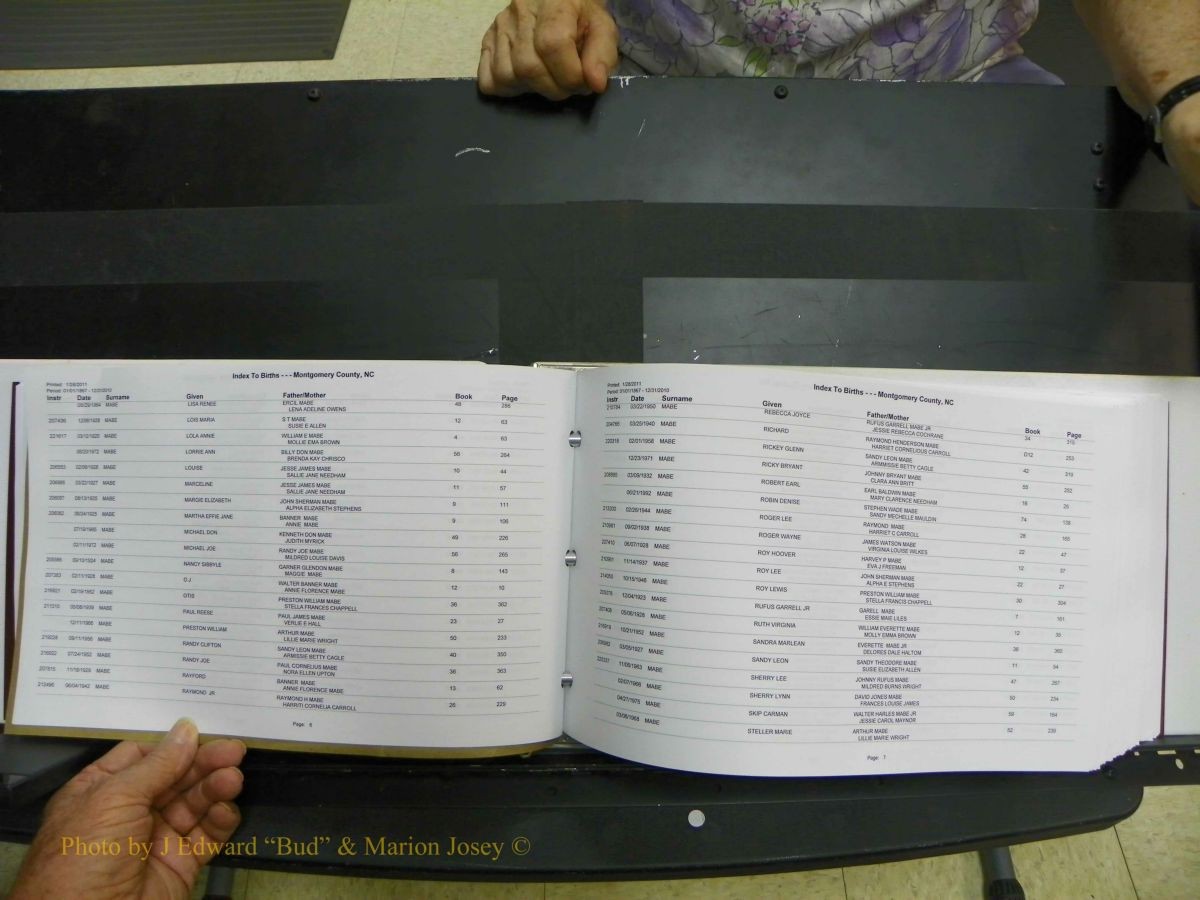 Index To Births - - - Montgomery County, NC
Printed: 1/28/2011
Period: 01/01/1867 - 12/31/2010
Instr Date Surname Given Father/Mother Book Page
MABE LISA RENEE ERCIL MABE 286
LENA ADELINE OWENS
MABE LOIS MARIA S T MABE 12 63
SUSIE E ALLEN
MABE LOLA ANNIE WILLIAM E MABE 4 63
MOLLIE EMA BROWN
MABE LORRIE ANN BILLY DON MABE 56 264
BRENDA KAY CHRISCO
MABE LOUISE JESSE JAMES MABE 10 44
SALLIE JANE NEEDHAM
MABE MARCELINE JESSE JAMES MABE 11 57
SALLIE JANE NEEDHAM
MABE MARGIE ELIZABETH JOHN SHERMAN MABE 9 111
ALPHA ELIZABETH STEPHENS
MABE MARTHA EFFIE JANE BANNER MABE 9 106
ANNIE MABE
MABE MICHAEL DON KENNETH DON MABE 49 226
JUDITH MYRICK
MABE MICHAEL JOE RANDY JOE MABE 56 265
MILDRED LOUISE DAVIS
MABE NANCY SIBBYLE GARNER GLENDON MABE 8 143
MAGGIE MABE
MABE O.J WALTER BANNER MABE 12 10
ANNIE FLORENCE MABE
MABE OTIS PRESTON WILLIAM MABE 36 362
STELLA FRANCES CHAPPELL
MABE PAUL REESE PAUL JAMES MABE 23 27
VERLIE E HALL
MABE PRESTON WILLIAM ARTHUR MABE 50 233
LILLIE MARIE WRIGHT
MABE RANDY CLIFTON SANDY LEON MABE 40 350
ARMISSIE BETTY CAGLE
MABE RANDY JOE PAUL CORNELIUS MABE 36 363
NORA ELLEN UPTON
MABE RAYFORD BANNER MABE 13 62
ANNIE FLORENCE MABE
MABE RAYMOND JR RAYMOND H MABE 26 229
HARRITI CORNELIA CARROLL
Page: 6
Index To Births - - - Montgomery County, NC
Printed: 1/28/2011
Period: 01/01/1867 - 12/31/2010
Instr Date Surname Given Father/Mother Book Page
03/22/1950 MABE REBECCA JOYCE RUFUS GARRELL MABE JR 34
JESSIE REBECCA COCHRANE
03/25/1940 MABE RICHARD RAYMOND HENDERSON MABE D12 253
HARRIET CORNELIOUS CARROLL
02/01/1958 MABE RICKEY GLENN SANDY LEON MABE 42 319
ARMMISSIE BETTY CAGLE
12/23/1971 MABE RICKY BRYANT JOHNNY BRYANT MABE 55 252
CLARA ANN BRITT
03/09/1932 MABE ROBERT EARL EARL BALDWIN MABE 16 26
MARY CLARENCE NEEDHAM
06/21/1992 MABE ROBIN DENISE STEPHEN WADE MABE 74 138
SANDY MECHELLE MAULDIN
02/26/1944 MABE ROGER LEE RAYMOND MABE 28 165
HARRIET C CARROLL
09/02/1938 MABE ROGER WAYNE JAMES WATSON MABE 22 47
VIRGINIA LOUISE WILKES
06/07/1928 MABE ROY HOOVER HARVEY P MABE 12 37
EVA J FREEMAN
11/14/1937 MABE ROY LEE JOHN SHERMAN MABE 22 27
ALPHA E STEPHENS
10/15/1946 MABE ROY LEWIS PRESTON WILLIAM MABE 30 304
STELLA FRANCIS CHAPPELL
12/04/1923 MABE RUFUS GARRELL JR GARELL MABE 7 161
ESSIE MAIE LILES
05/06/1928 MABE RUTH VIRGINIA WILLIAM EVERETTE MABE 12 35
MOLLY EMMA BROWN
10/21/1952 MABE SANDRA MARLEAN EVERETTE MABE JR 36 360
DELORES DALE HALTOM
03/05/1927 MABE SANDY LEON SANDY THEODORE MABE 11 54
SUSIE ELIZABETH ALLEN
11/05/1963 MABE SHERRY LEE JOHNNY RUFUS MABE 47 267
MILDRED BURNS WRIGHT
02/07/1966 MABE SHERRY LYNN DAVID JONES MABE 50 234
FRANCES LOUISE JAMES
04/27/1975 MABE SKIP CARMAN WALTER HARLES MABE JR 59 164
JESSIE CAROL MAYNOR
03/06/1968 MABE STELLER MARIE ARTHUR MABE 52 239
LILLIE MARIE WRIGHT
Page: 7
Photo by J Edward “Bud” & Marion Josey ©